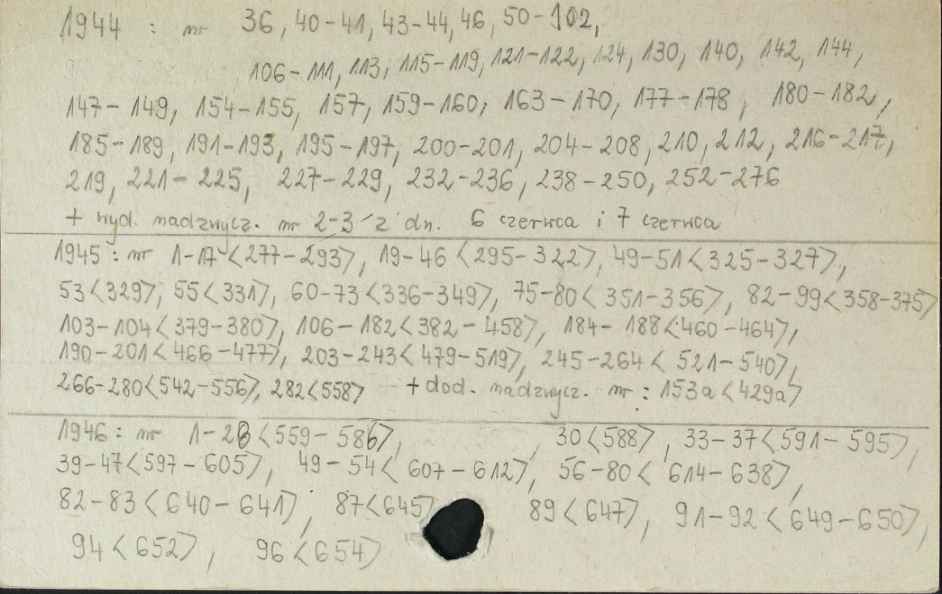 1944 : nr 36, 40-41, 43-44, 46, 50-102,
106-111, 113, 115-119, 121-122, 124, 130, 140, 142, 144,
147-149, 154-155, 157, 159-160, 163-170, 177-178, 180-182,
185-189, 191-193, 195-197, 200-201, 204-208, 210, 212, 216-217,
219, 221-225, 227-229, 232-236, 238-250, 252-276
+ wyd. nadzwycz. nr 2-3 z dn. 6 czerwca i 7 czerwca
1945 : nr 1-17 <277-293>, 19-46 <295-322>, 49-51 <325-327>,
53 <329>, 55 <331>, 60-73 <336-349>, 75-80 <351-356>, 82-99 <358-375>
103-104 <379-380>, 106-182 <382-458>, 184-188 <460-464>,
190-201 <466-477>, 203-243 <479-519>, 245-264 <521-540>,
266-280 <542-556>, 282 <558> + dod. nadzwycz. nr : 153a <429a>
1946 : nr 1-28 <559-586>, 30 <588>, 33-37 <591-595>,
39-47 <597-605>, 49-54 <607-612>, 56-80 <614-638>,
82-83 <640-641>, 87 <645> 89 <647>, 91-92 <649-650>,
94 <652>, 96 <654>